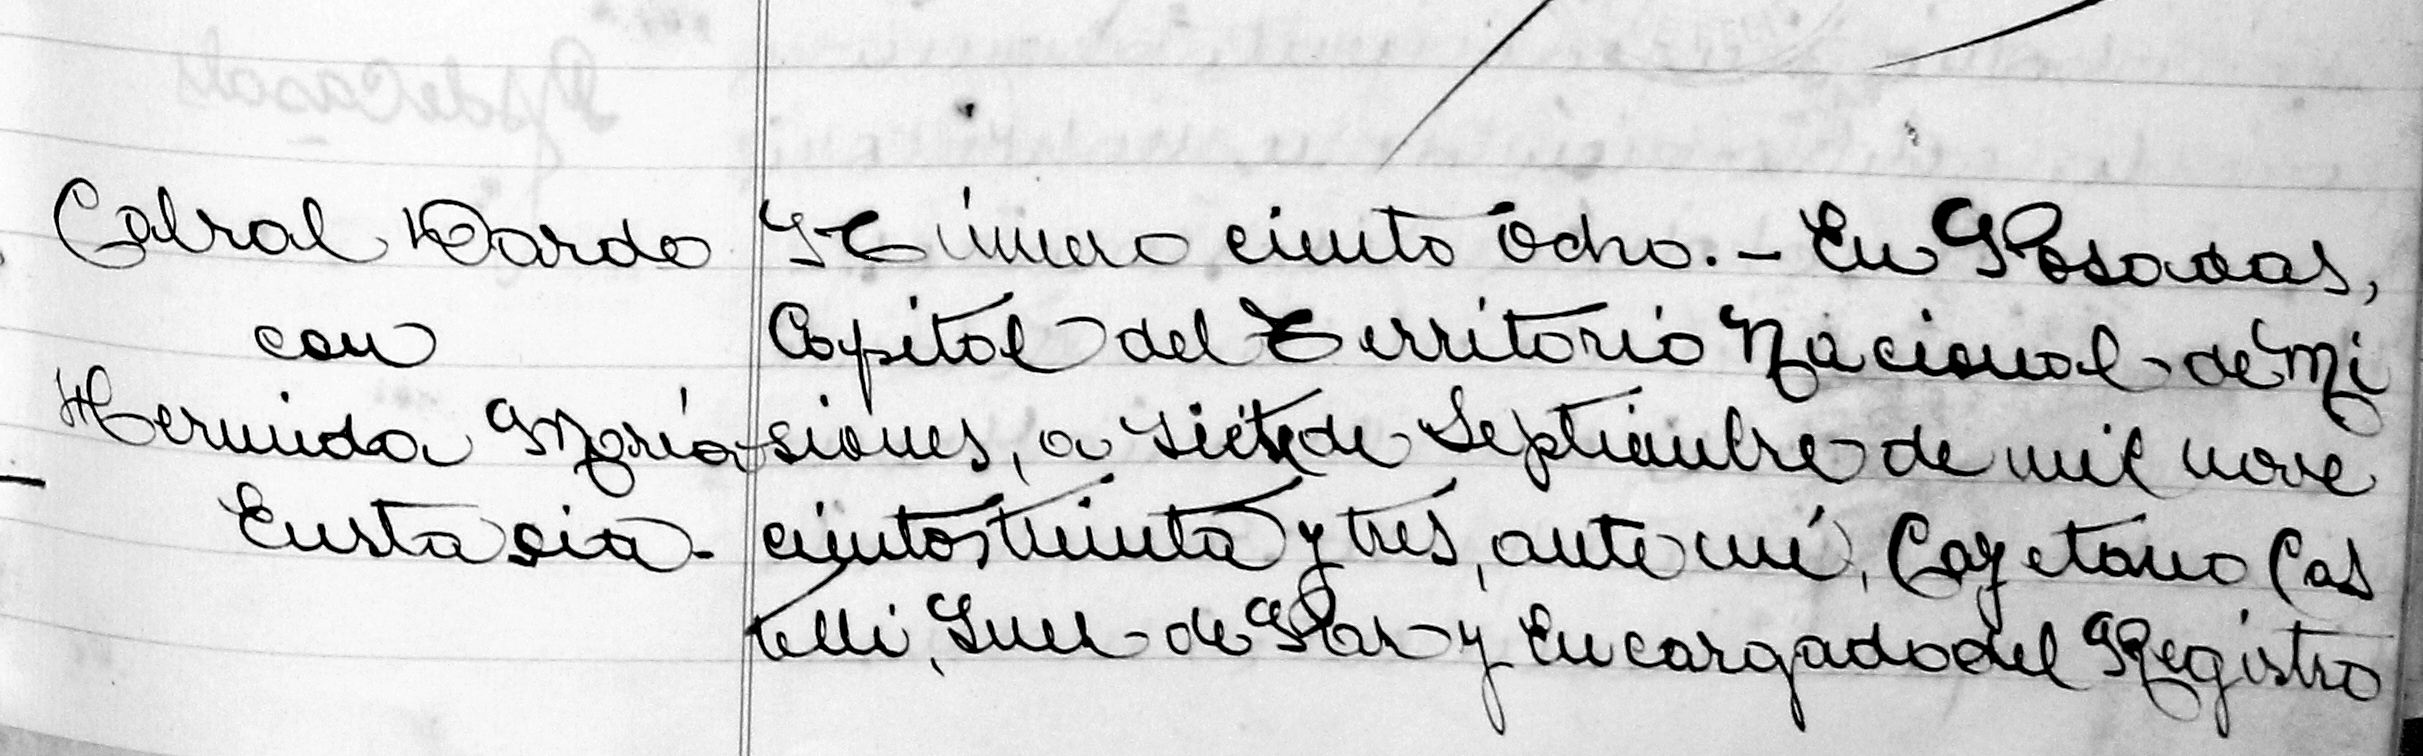 Cabral Dardo
con
Hermida María
Eustacia.
Número ciento ocho. - En Posadas,
Capital del Territorio Nacional de Mi
siones, a siete de Septiembre de mil nove
cientos treinta y tres, ante mí, Cayetano Cas
telli, Juez de Paz y Encargado del Registro